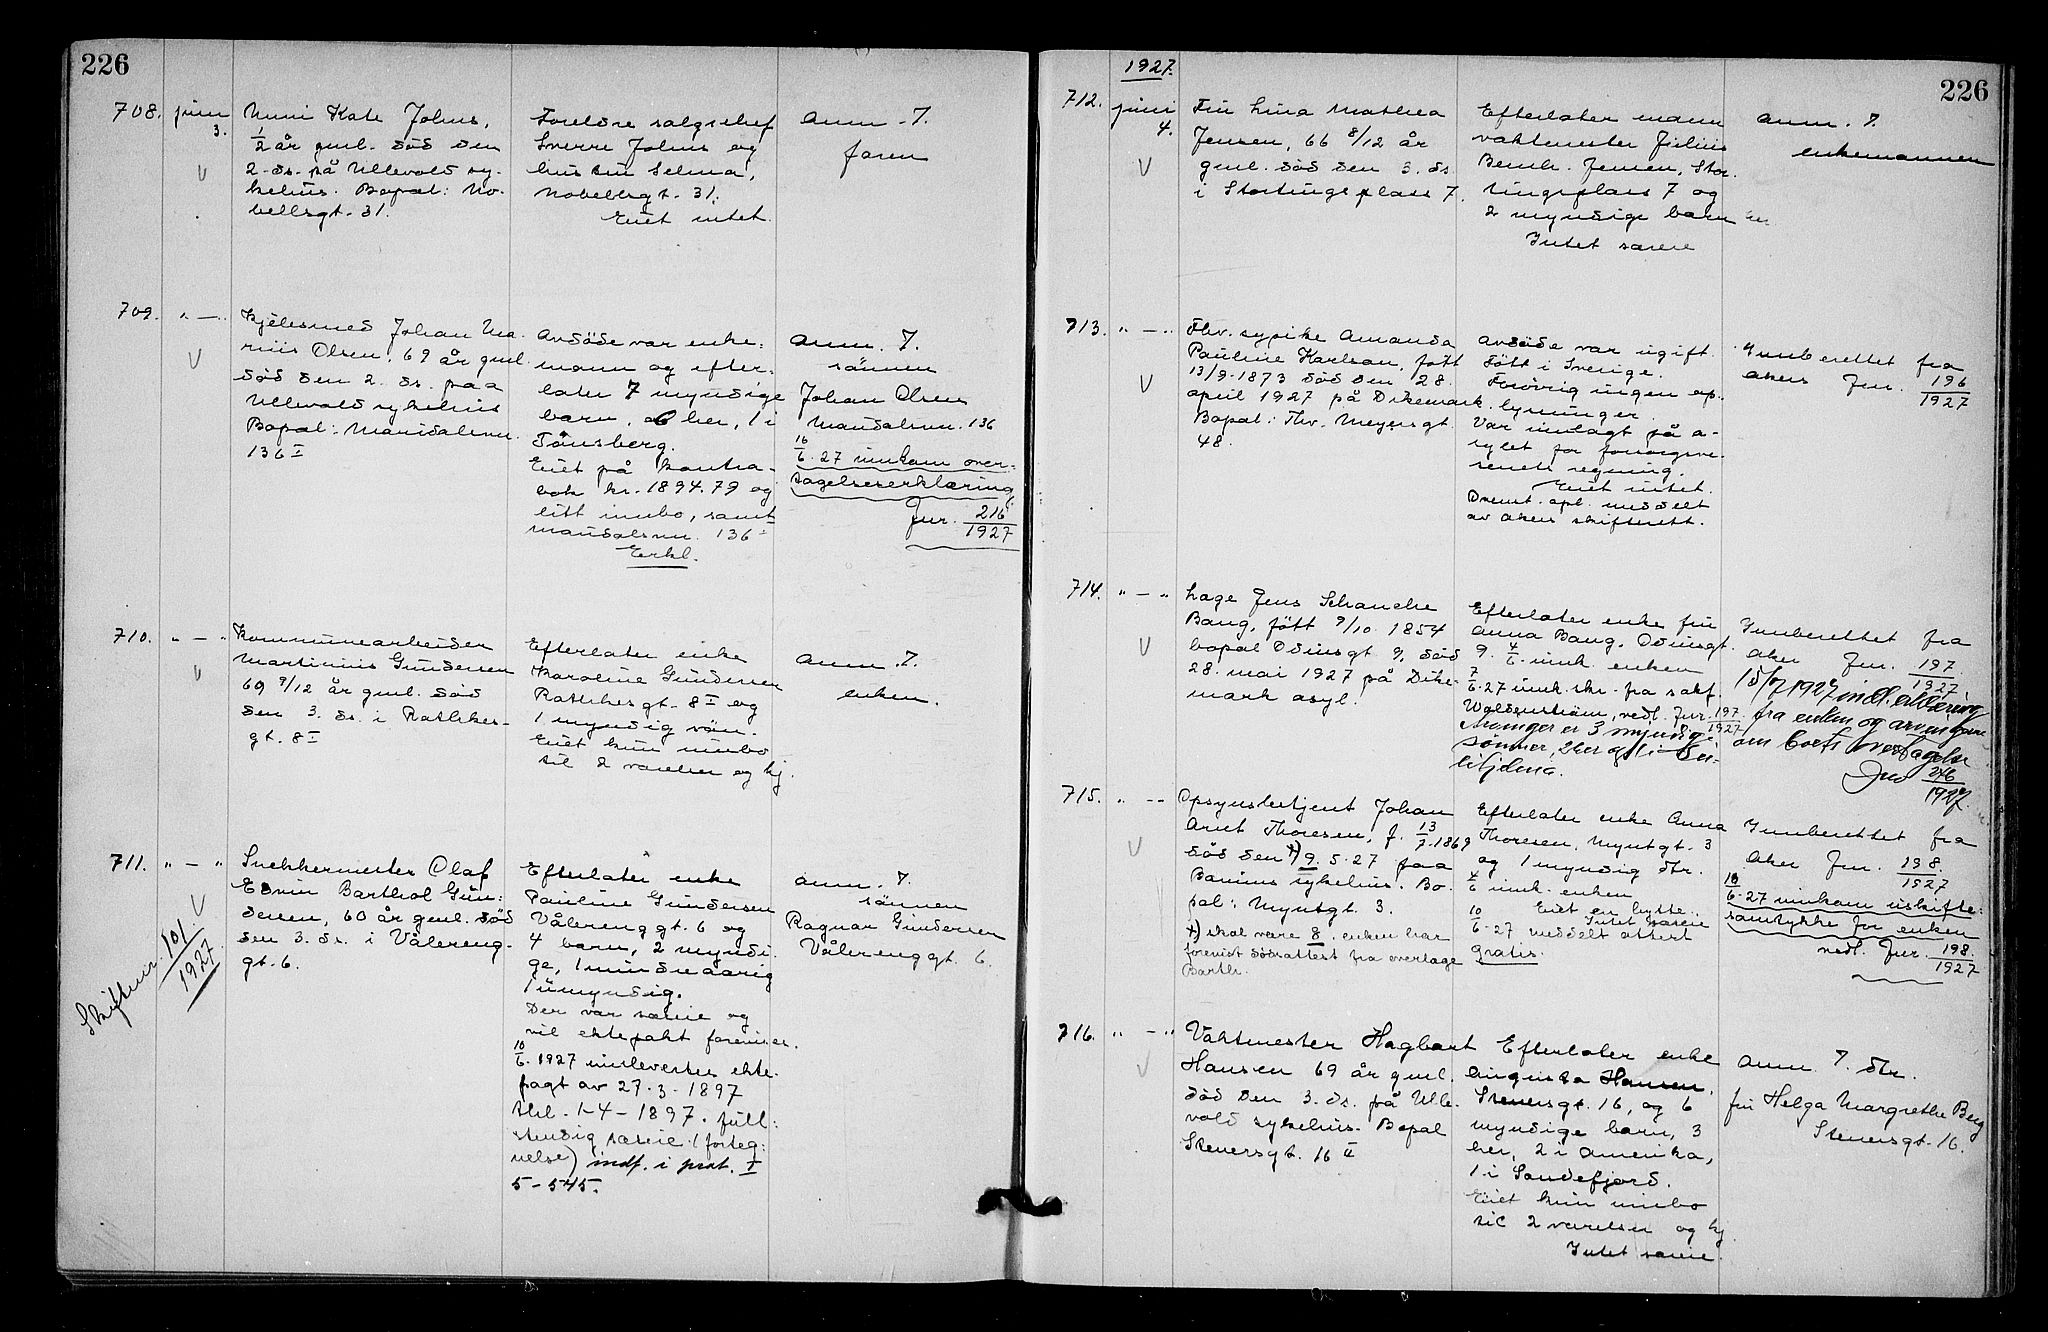 226
708. juni 3.
Unni Kate Johns,
1/2 år gml. död den
2. ds. på Ullevold sy-
kehus. Bopæl: No-
bellsgt. 31.
Foreldre salgschef
Sverre Johns og
hustru Selma,
Nobellsgt. 31.
Eiet intet.
Anm. 7.
faren
709. " — "
Kjelesmed Johan Ma-
rius Olsen, 69 år gml.
död den 2. ds. paa
Ullevold sykehus
Bopæl: Maridalsvn.
136 I
Avdöde var enke-
mann og efter-
later 7 myndige
barn, 6 her, 1 i
Tönsberg.
Eiet på kontra-
bok kr. 1894.79 og
litt innbo, samt
Maridalsvn. 136
Erkl.
Anm. 7.
sönnen
Johan Olsen
Maridalsvn. 136
16/6.27 innkom over-
tagelseserklæring
Jnr. 216/1927
710. " — "
Kommunearbeider
Martinius Gundersen
69 9/12 år gml. död
den 3. ds. i Rathkes-
gt. 8 I
Efterlater enke
Karoline Gundersen
Rathkesgt. 8 I og
1 myndig sön.
Eiet kun innbo
til 2 værelser og kj.
Anm. 7.
enken.
711. " — "
Skiftenr. 101/1927
Snekkermester Olaf
Edvin Barthol Gun-
dersen, 60 år gml. död
den 3. ds. i Vålereng-
gt. 6.
Efterlater enke
Pauline Gundersen
Vålerenggt. 6 og
4 barn, 2 myndi-
ge, 1 mindreaarig
1 umyndig.
Der var særeie og
vil ektepakt forevises.
10/6.1927 innlevertes ekte-
pagt av 27-3-1897
thl. 1-4-1897. full-
stendig særeie (forteg-
nelse) indf. i prot. I
5-545.
Anm. 7.
sönnen
Ragnar Gundersen
Vålerenggt. 6.
1927.
226
712. juni 4.
Fru Lina Mathea
Jensen, 66 8/12 år
gml. död den 3. ds.
i Stortingsplass 7.
Efterlater mann
vaktmester Julius
Bernh. Jensen, Stor-
tingsplass 7 og
2 myndige barn her
Intet særeie
Anm. 7.
enkemannen
713. " — "
Fhv. sypike Amanda
Pauline Karlson, födt
13/9-1873 död den 28.
april 1927 på Dikemark.
Bopæl: Thv. Meyersgt.
48.
Avdöde var ugift.
Födt i Sverige.
Forövrig ingen op-
lysninger.
Var innlagt på a-
sylet for forsorgsve-
senets regning.
Eiet intet.
Ovennt. opl. meddelt
av Akers skifterett.
Innberettet fra
Akers Jnr. 196/1927
714. " — "
Lage Jens Schanche
Bang, födt 9/10 1854
bopæl Odinsgt 9, död
28. mai 1927 på Dike-
mark asyl.
Efterlater enke fru
Anna Bang, Odinsgt.
9. 4/6 innk. enken
7/6.27 innk. skr. fra sakf.
Waldenström, vedl. Jnr. 197/1927
Arvinger er 3 myndige
sønner, 2 her og 1 i
Innberettet fra
Aker Jnr. 197/1927
15/7 1927 indl. erklæring
fra enken og arvingene
om boets overtagelse
Jnr 246/1927.
715. " — "
Opsynsbetjent Johan
Arnt Thoresen, f. 13/7-1869
död den x) 9.5.27 paa
Bærums sykehus. Bo-
pæl: Myntgt. 3.
x) skal være 8. enken har
forevist dödsattest fra overlæge
Barth.
Efterlater enke Anna
Thoresen, Myntgt. 3
og 1 myndig dtr.
4/6 innk. enken
Eiet en hytte.
Intet særeie
10/6-27 meddelt attest
gratis.
Innberettet fra
Aker Jnr. 198/1927
10/6-27 innkom uskifte-
samtykke for enken
vedl. Jnr. 198/1927
716. " — "
Vaktmester Hagbart
Hansen 69 år gml.
död den 3. ds. på Ulle-
vold sykehus. Bopæl
Stenersgt. 16 II
Efterlater enke
Hansen,
Stenersgt. 16, og 6
myndige barn, 3
her, 2 i Amerika,
1 i Sandefjord.
Eiet kun innbo
til 2 værelser og kj.
Intet særeie.
Anm. 7. dtr.
fru Helga Margrethe Berg
Stenersgt. 16.